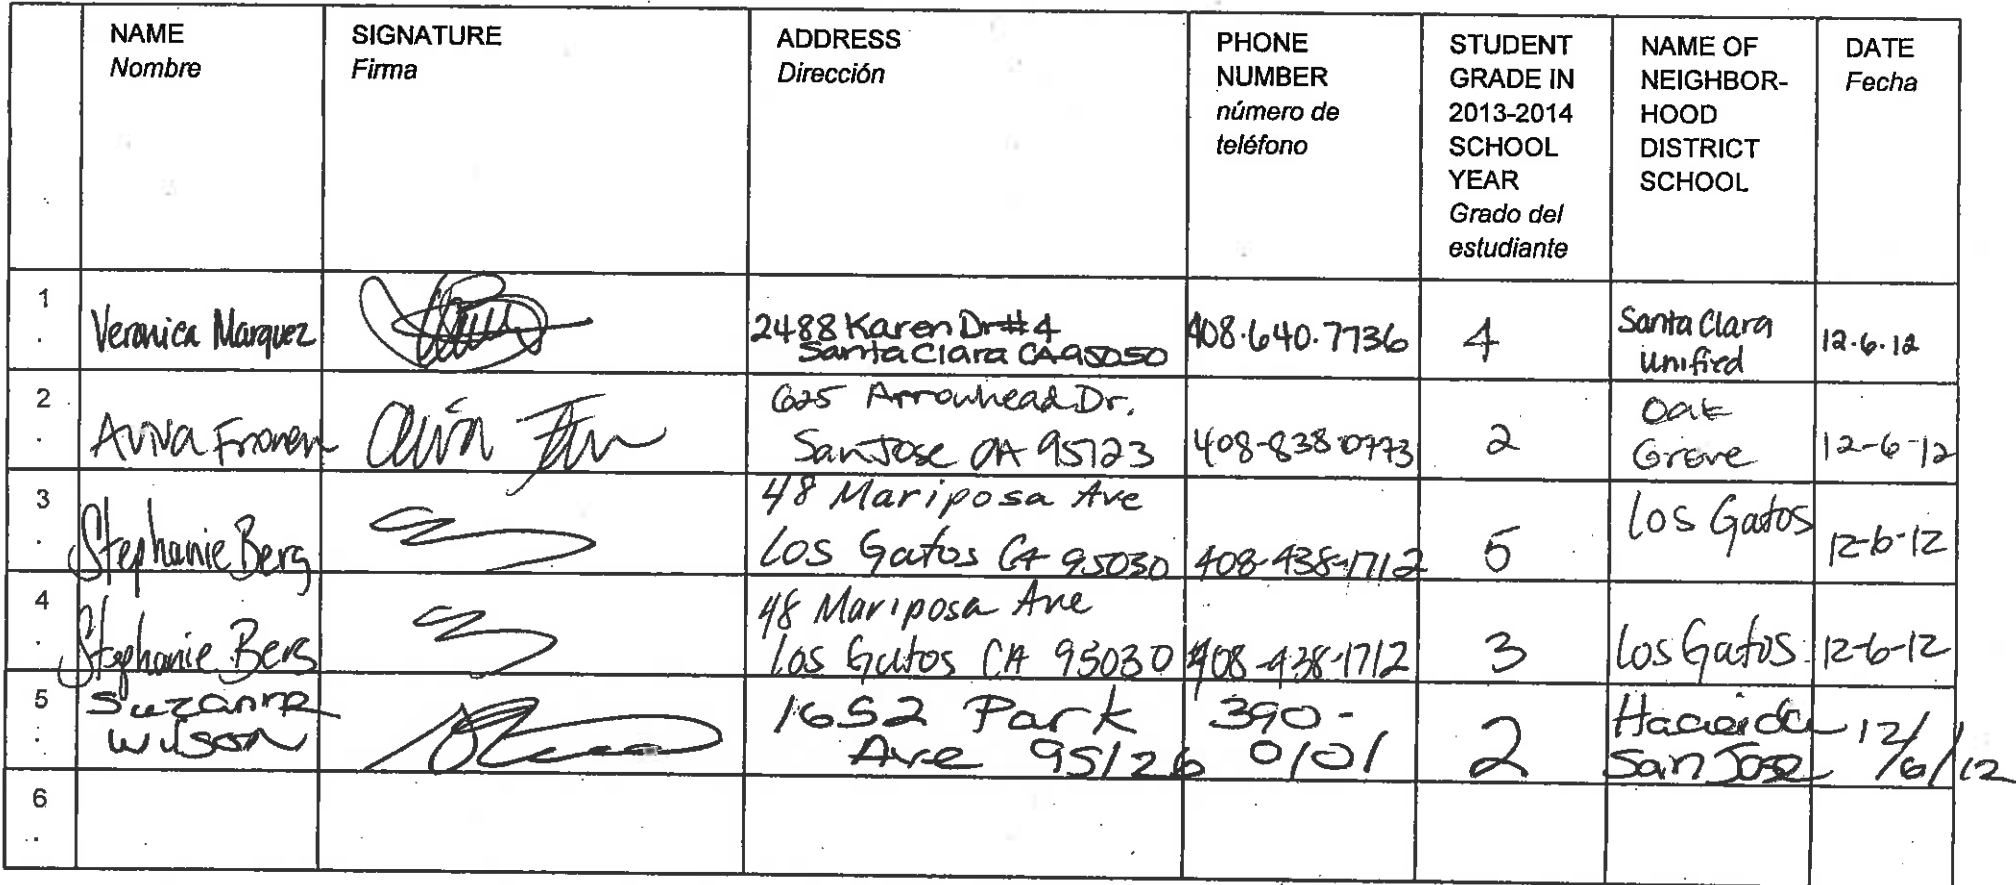 NAME
Nombre
SIGNATURE
Firma
ADDRESS
Dirección
PHONE
NUMBER
número de
teléfono
STUDENT
GRADE IN
2013-2014
SCHOOL
YEAR
Grado del
estudiante
NAME OF
NEIGHBOR-
HOOD
DISTRICT
SCHOOL
DATE
Fecha
1
Veronica Marquez
2488 Karen Dr #4
Santa Clara CA 95050
408.640.7736
4
Santa Clara
Unified
12.6.12
2
Aviva
625 Arrowhead Dr.
San Jose CA 95123
408-838-0773
2
Oak
Grove
12-6-12
3
Stephanie Berg
48 Mariposa Ave
Los Gatos CA 95030
408-438-1712
5
Los Gatos
12-6-12
4
Stephanie Berg
48 Mariposa Ave
Los Gatos CA 95030
408-438-1712
3
Los Gatos
12-6-12
5
Suzanne
Wilson
1652 Park
Ave 95126
390-
0101
2
San Jose
12/
6/12
6